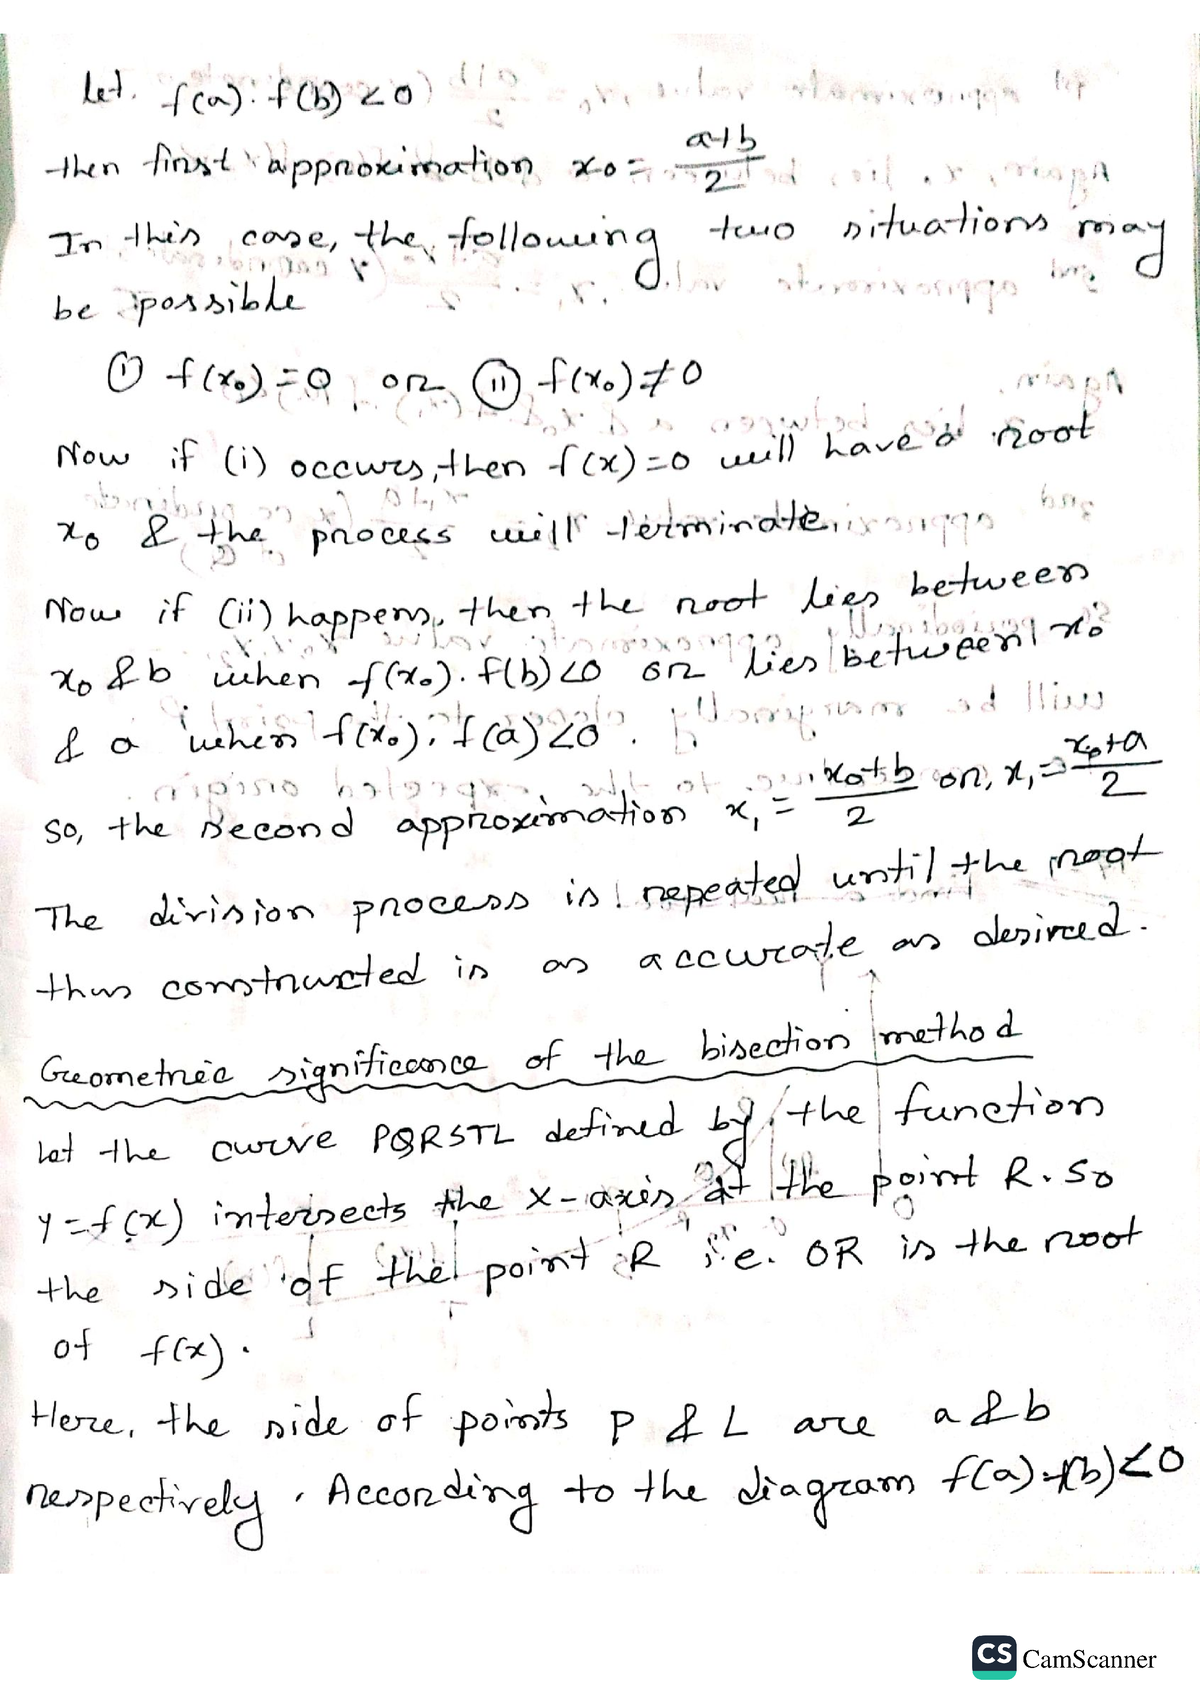 let. f(a). f(b) <0
then first approximation x0 = a+b/2
In this case, the following two situations may
be possible
(i) f(x0) = 0 or (ii) f(x0) ≠ 0
Now if (i) occurs, then f(x)=0 will have a root
x0 & the process will terminate.
Now if (ii) happens, then the root lies between
x0 & b when f(x0). f(b)<0 or lies between x0
& a when f(x0). f(a)<0.
So, the second approximation x1 = x0+b/2 or, x1 = x0+a/2
The division process is repeated until the root
thus constructed is as accurate as desired.
Geometric significance of the bisection method
Let the curve PQRSTL defined by the function
y=f(x) intersects the x-axis at the point R. So
the side of the point R i.e. OR is the root
of f(x).
Here, the side of points P & L are a & b
respectively. According to the diagram f(a).f(b)<0
CS CamScanner